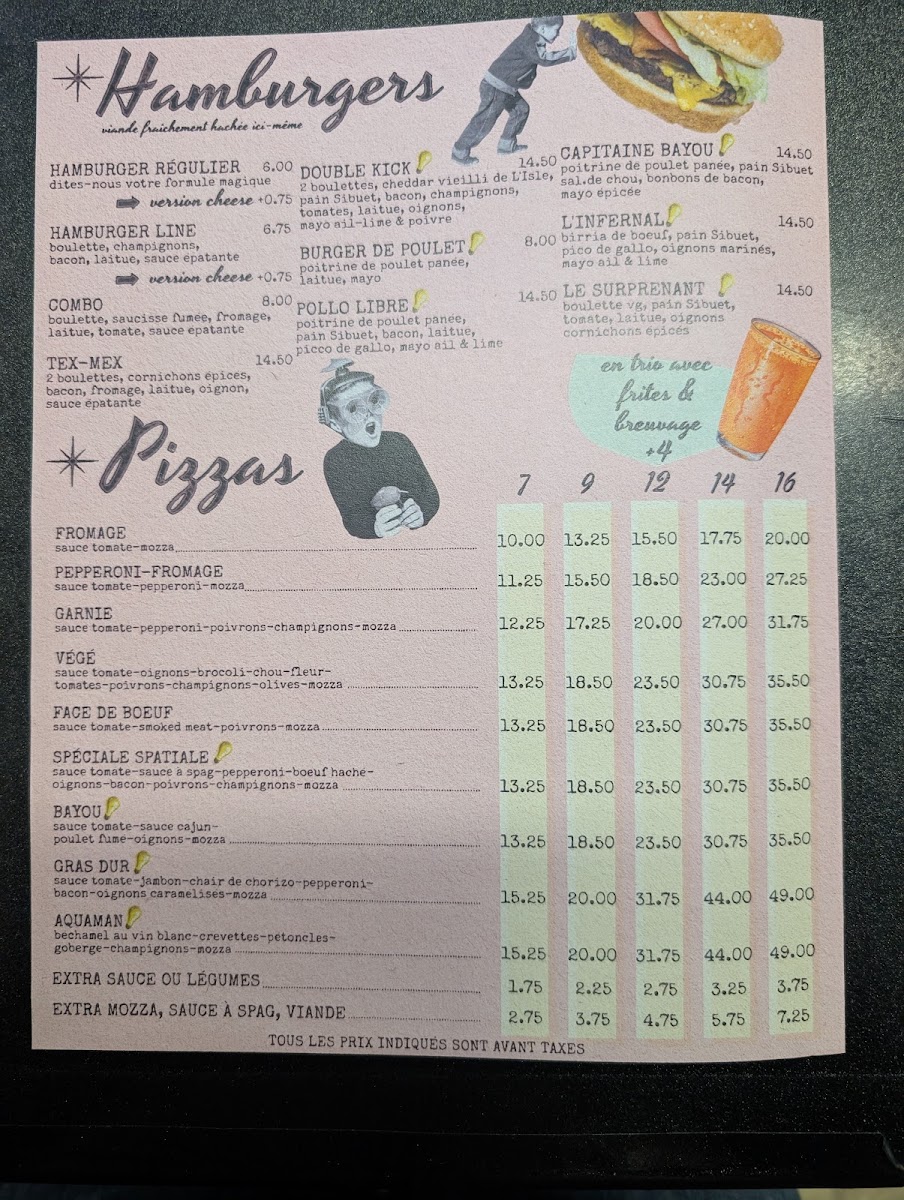 Hamburgers
viande fraîchement hachée ici-même
HAMBURGER RÉGULIER 6.00
dites-nous votre formule magique
version cheese +0.75
HAMBURGER LINE 6.75
boulette, champignons,
bacon, laitue, sauce épatante
version cheese +0.75
COMBO 8.00
boulette, saucisse fumée, fromage,
laitue, tomate, sauce épatante
TEX-MEX 14.50
2 boulettes, cornichons épicés,
bacon, fromage, laitue, oignon,
sauce épatante
DOUBLE KICK 14.50
2 boulettes, cheddar vieilli de L'Isle,
pain Sibuet, bacon, champignons,
tomates, laitue, oignons,
mayo ail-lime & poivre
BURGER DE POULET 8.00
poitrine de poulet panée,
laitue, mayo
POLLO LIBRE 14.50
poitrine de poulet panée,
pain Sibuet, bacon, laitue,
picco de gallo, mayo ail & lime
CAPITAINE BAYOU 14.50
poitrine de poulet panée, pain Sibuet
sal.de chou, bonbons de bacon,
mayo épicée
L'INFERNAL 14.50
birria de boeuf, pain Sibuet,
pico de gallo, oignons marinés,
mayo ail & lime
LE SURPRENANT 14.50
boulette vg, pain Sibuet,
tomate, laitue, oignons
cornichons épicés
en trio avec
frites &
breuvage
+4
Pizzas
7 9 12 14 16
FROMAGE
sauce tomate-mozza 10.00 13.25 15.50 17.75 20.00
PEPPERONI-FROMAGE
sauce tomate-pepperoni-mozza 11.25 15.50 18.50 23.00 27.25
GARNIE
sauce tomate-pepperoni-poivrons-champignons-mozza 12.25 17.25 20.00 27.00 31.75
VÉGÉ
sauce tomate-oignons-brocoli-chou-fleur-
tomates-poivrons-champignons-olives-mozza 13.25 18.50 23.50 30.75 35.50
FACE DE BOEUF
sauce tomate-smoked meat-poivrons-mozza 13.25 18.50 23.50 30.75 35.50
SPÉCIALE SPATIALE
sauce tomate-sauce à spag-pepperoni-boeuf haché-
oignons-bacon-poivrons-champignons-mozza 13.25 18.50 23.50 30.75 35.50
BAYOU
sauce tomate-sauce cajun-
poulet fumé-oignons-mozza 13.25 18.50 23.50 30.75 35.50
GRAS DUR
sauce tomate-jambon-chair de chorizo-pepperoni-
bacon-oignons caramélisés-mozza 15.25 20.00 31.75 44.00 49.00
AQUAMAN
béchamel au vin blanc-crevettes-pétoncles-
goberge-champignons-mozza 15.25 20.00 31.75 44.00 49.00
EXTRA SAUCE OU LÉGUMES 1.75 2.25 2.75 3.25 3.75
EXTRA MOZZA, SAUCE À SPAG, VIANDE 2.75 3.75 4.75 5.75 7.25
TOUS LES PRIX INDIQUÉS SONT AVANT TAXES